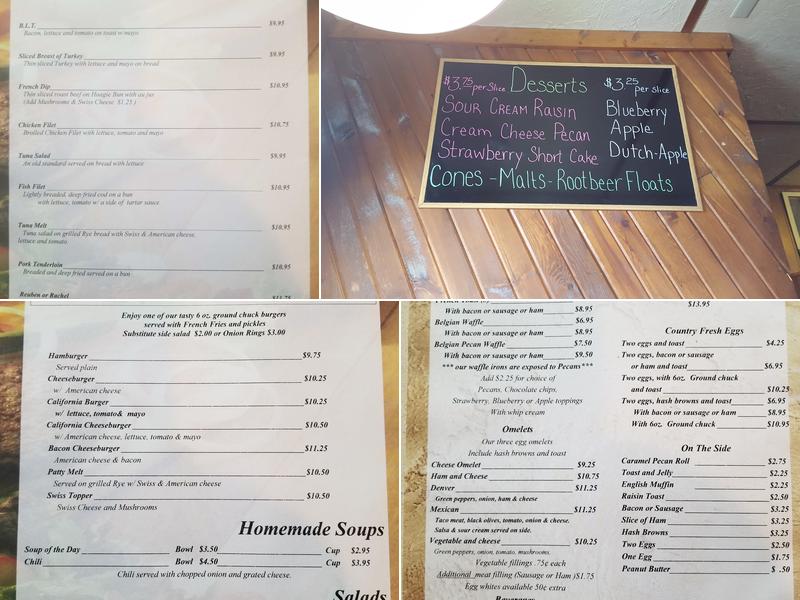 B.L.T. $9.95
Bacon, lettuce and tomato on toast w/mayo
Sliced Breast of Turkey $9.95
Thin sliced Turkey with lettuce and mayo on bread
French Dip $10.95
Thin sliced roast beef on Hoagie Bun with au jus
(Add Mushrooms & Swiss Cheese $1.25 )
Chicken Filet $10.75
Broiled Chicken Filet with lettuce, tomato and mayo
Tuna Salad $9.95
An old standard served on bread with lettuce
Fish Filet $10.95
Lightly breaded, deep fried cod on a bun
with lettuce, tomato w/ a side of tartar sauce
Tuna Melt $10.95
Tuna salad on grilled Rye bread with Swiss & American cheese,
lettuce and tomato
Pork Tenderloin $10.95
Breaded and deep fried served on a bun
Reuben or Rachel $11.75
$3.75 per Slice Desserts $3.25 per slice
Sour Cream Raisin
Cream Cheese Pecan
Strawberry Short Cake
Blueberry
Apple
Dutch-Apple
Cones - Malts - Rootbeer Floats
Enjoy one of our tasty 6 oz. ground chuck burgers
served with French Fries and pickles
Substitute side salad $2.00 or Onion Rings $3.00
Hamburger $9.75
Served plain
Cheeseburger $10.25
w/ American cheese
California Burger $10.25
w/ lettuce, tomato& mayo
California Cheeseburger $10.50
w/ American cheese, lettuce, tomato & mayo
Bacon Cheeseburger $11.25
American cheese & bacon
Patty Melt $10.50
Served on grilled Rye w/ Swiss & American cheese
Swiss Topper $10.50
Swiss Cheese and Mushrooms
Homemade Soups
Soup of the Day Bowl $3.50 Cup $2.95
Chili Bowl $4.50 Cup $3.95
Chili served with chopped onion and grated cheese.
Salads
With bacon or sausage or ham $8.95
Belgian Waffle $6.95
With bacon or sausage or ham $8.95
Belgian Pecan Waffle $7.50
With bacon or sausage or ham $9.50
*** our waffle irons are exposed to Pecans***
Add $2.25 for choice of
Pecans, Chocolate chips,
Strawberry, Blueberry or Apple toppings
With whip cream
Omelets
Our three egg omelets
Include hash browns and toast
Cheese Omelet $9.25
Ham and Cheese $10.75
Denver $11.25
Green peppers, onion, ham & cheese
Mexican $11.25
Taco meat, black olives, tomato, onion & cheese.
Salsa & sour cream served on side.
Vegetable and cheese $10.25
Green peppers, onion, tomato, mushrooms.
Vegetable fillings .75¢ each
Additional meat filling (Sausage or Ham )$1.75
Egg whites available 50¢ extra
Beverages
$13.95
Country Fresh Eggs
Two eggs and toast $4.25
Two eggs, bacon or sausage
or ham and toast $6.95
Two eggs, with 6oz. Ground chuck
and toast $10.25
Two eggs, hash browns and toast $6.95
With bacon or sausage or ham $8.95
With 6oz. Ground chuck $10.95
On The Side
Caramel Pecan Roll $2.75
Toast and Jelly $2.25
English Muffin $2.25
Raisin Toast $2.50
Bacon or Sausage $3.25
Slice of Ham $3.25
Hash Browns $3.25
Two Eggs $2.50
One Egg $1.75
Peanut Butter $ .50